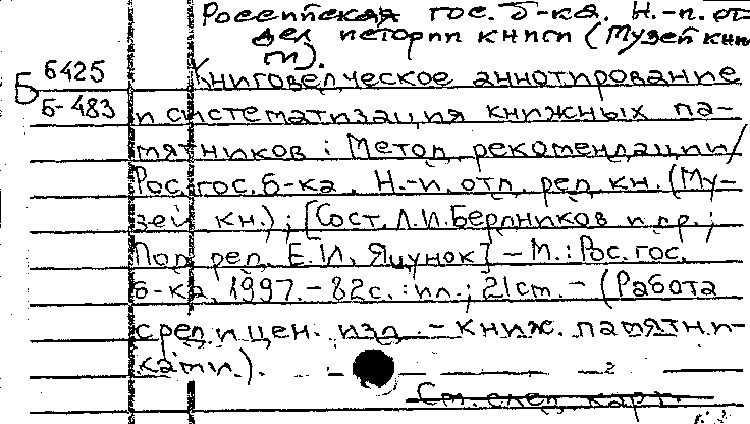 Российская гос. б-ка. Н.-и. от-
дел истории книги (Музей кни-
ги).
Б 6425
Б-483
Книговедческое аннотирование
и систематизация книжных па-
мятников : Метод. рекомендации/
Рос. гос. б-ка. Н.-и. отд. ред. кн. (Му-
зей кн.) ; [Сост. Л.И. Бердников и др. ;
Под ред. Е.И. Яцунок] - М. : Рос. гос.
б-ка, 1997. - 82с. : ил. ; 21 см. - (Работа
сред. и цен. изд. - книж. памятни-
ками.).
См. след. карт.